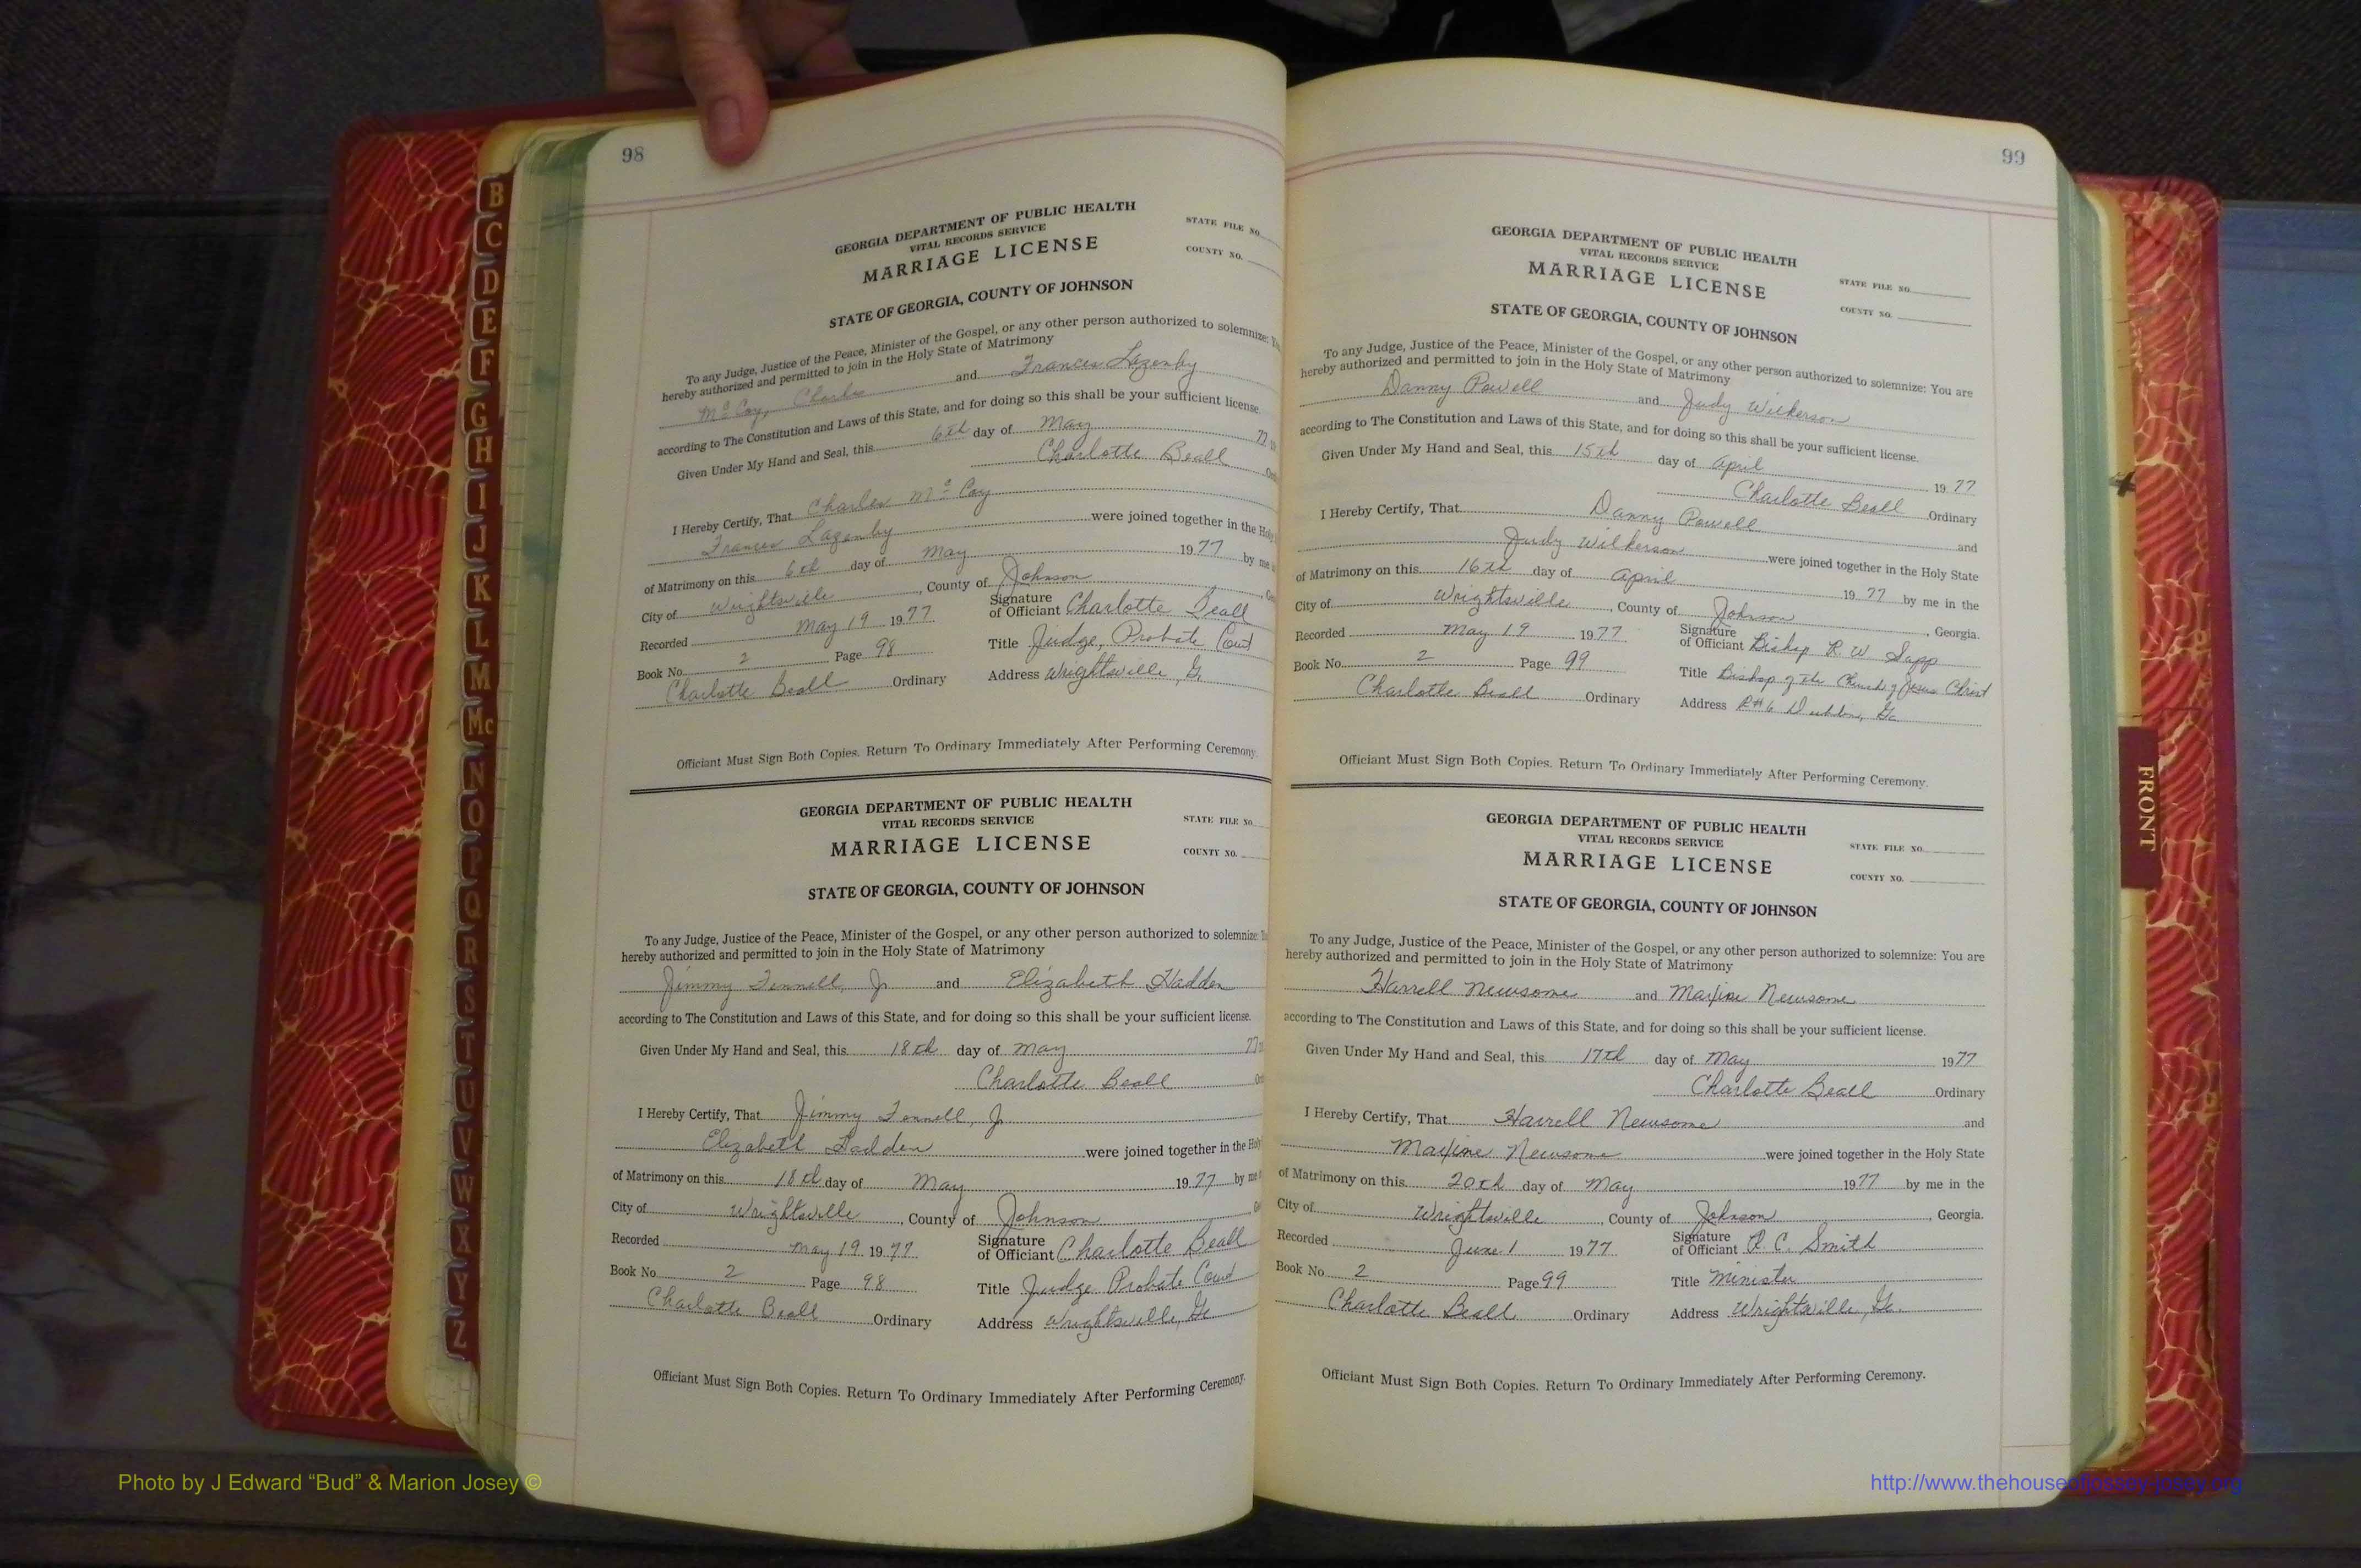 98
GEORGIA DEPARTMENT OF PUBLIC HEALTH
VITAL RECORDS SERVICE
MARRIAGE LICENSE
STATE FILE NO.
COUNTY NO.
STATE OF GEORGIA, COUNTY OF JOHNSON
To any Judge, Justice of the Peace, Minister of the Gospel, or any other person authorized to solemnize:
hereby authorized and permitted to join in the Holy State of Matrimony
McCoy, Charles and Frances Lazenby
according to The Constitution and Laws of this State, and for doing so this shall be your sufficient license.
Given Under My Hand and Seal, this 6th day of May 77
Charlotte Beall
I Hereby Certify, That Charles McCoy
Frances Lazenby were joined together in the Holy
of Matrimony on this 6th day of May 1977 by me
City of Wrightsville, County of Johnson
Recorded May 19 1977
Signature of Officiant Charlotte Beall
Book No. 2 Page 98
Title Judge, Probate Court
Charlotte Beall Ordinary
Address Wrightsville, Ga
Officiant Must Sign Both Copies. Return To Ordinary Immediately After Performing Ceremony.
GEORGIA DEPARTMENT OF PUBLIC HEALTH
VITAL RECORDS SERVICE
MARRIAGE LICENSE
STATE FILE NO.
COUNTY NO.
STATE OF GEORGIA, COUNTY OF JOHNSON
To any Judge, Justice of the Peace, Minister of the Gospel, or any other person authorized to solemnize:
hereby authorized and permitted to join in the Holy State of Matrimony
Jimmy Fennell, Jr and Elizabeth Hadden
according to The Constitution and Laws of this State, and for doing so this shall be your sufficient license.
Given Under My Hand and Seal, this 18th day of May 77
Charlotte Beall
I Hereby Certify, That Jimmy Fennell, Jr
Elizabeth Hadden were joined together in the Holy
of Matrimony on this 18th day of May 1977 by me
City of Wrightsville, County of Johnson
Recorded May 19 1977
Signature of Officiant Charlotte Beall
Book No. 2 Page 98
Title Judge Probate Court
Charlotte Beall Ordinary
Address Wrightsville, Ga.
Officiant Must Sign Both Copies. Return To Ordinary Immediately After Performing Ceremony.
99
GEORGIA DEPARTMENT OF PUBLIC HEALTH
VITAL RECORDS SERVICE
MARRIAGE LICENSE
STATE FILE NO.
COUNTY NO.
STATE OF GEORGIA, COUNTY OF JOHNSON
To any Judge, Justice of the Peace, Minister of the Gospel, or any other person authorized to solemnize: You are
hereby authorized and permitted to join in the Holy State of Matrimony
Danny Powell and Judy Wilkerson
according to The Constitution and Laws of this State, and for doing so this shall be your sufficient license.
Given Under My Hand and Seal, this 15th day of April 1977
Charlotte Beall Ordinary
I Hereby Certify, That Danny Powell and
Judy Wilkerson were joined together in the Holy State
of Matrimony on this 16th day of April 1977 by me in the
City of Wrightsville, County of Johnson, Georgia.
Recorded May 19 1977
Signature of Officiant Bishop R. W Sapp
Book No. 2 Page 99
Title Bishop of the Church of Jesus Christ
Charlotte Beall Ordinary
Address R#6 Dublin, Ga
Officiant Must Sign Both Copies. Return To Ordinary Immediately After Performing Ceremony.
GEORGIA DEPARTMENT OF PUBLIC HEALTH
VITAL RECORDS SERVICE
MARRIAGE LICENSE
STATE FILE NO.
COUNTY NO.
STATE OF GEORGIA, COUNTY OF JOHNSON
To any Judge, Justice of the Peace, Minister of the Gospel, or any other person authorized to solemnize: You are
hereby authorized and permitted to join in the Holy State of Matrimony
Harrell Newsome and Maxine Newsome
according to The Constitution and Laws of this State, and for doing so this shall be your sufficient license.
Given Under My Hand and Seal, this 17th day of May 1977
Charlotte Beall Ordinary
I Hereby Certify, That Harrell Newsome and
Maxine Newsome were joined together in the Holy State
of Matrimony on this 20th day of May 1977 by me in the
City of Wrightsville, County of Johnson, Georgia.
Recorded June 1 1977
Signature of Officiant R. C. Smith
Book No. 2 Page 99
Title Minister
Charlotte Beall Ordinary
Address Wrightsville, Ga.
Officiant Must Sign Both Copies. Return To Ordinary Immediately After Performing Ceremony.
B
C
D
E
F
G
H
I
J
K
L
M
Mc
N
O
P
Q
R
S
T
U
V
W
X
Y
Z
FRONT
Photo by J Edward “Bud” & Marion Josey ©
http://www.thehouseofjossey-josey.org